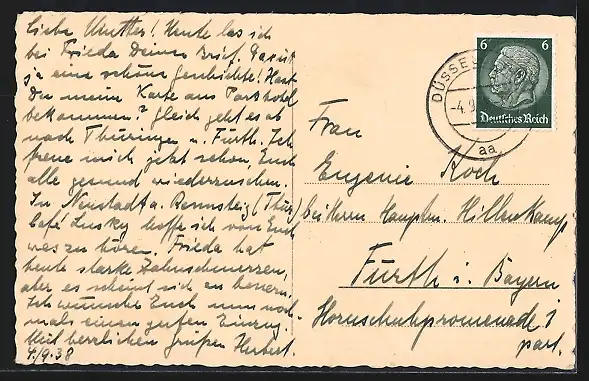 Liebe Mutter! Heute las ich
bei Frieda Deinen Brief. Das ist
ja eine schöne Geschichte! Hast
Du meine Karte aus Parkhotel
bekommen? Gleich geht es ab
nach Thüringen u. Fürth. Ich
freue mich jetzt schon, Euch
alle gesund wiederzusehen.
In Neustadt a. Rennsteig (Thür.)
Café Lusky hoffe ich von Euch
was zu hören. Frieda hat
heute starke Zahnschmerzen,
aber es scheint sich zu bessern.
Ich wünsche Euch nun noch-
mals einen guten Einzug
Mit herzlichen Grüßen Herbert.
4/9.38
6 6
Deutsches Reich
DÜSSE
-4.9
aa
Frau
Eugenie Koch
bei Herrn Hauptm. Hillenkamp
Fürth i. Bayern
Hornschuchpromenade 1
part.